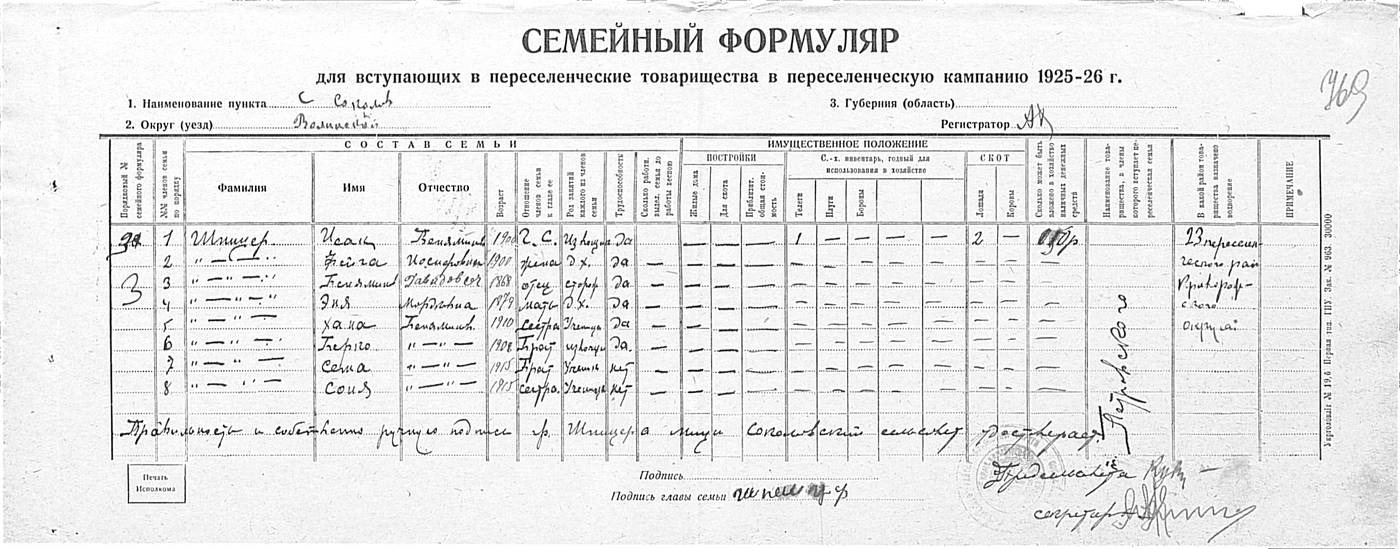 СЕМЕЙНЫЙ ФОРМУЛЯР
для вступающих в переселенческие товарищества в переселенческую кампанию 1925-26 г.
369
1. Наименование пункта с Соколов
3. Губерния (область)
2. Округ (уезд) Волинской
Регистратор
СОСТАВ СЕМЬИ
ИМУЩЕСТВЕННОЕ ПОЛОЖЕНИЕ
Порядковый № семейного формуляра
№№ членов семьи по порядку
Фамилия
Имя
Отчество
Возраст
Отношение членов семьи к главе ее
Род занятий каждого из членов семьи
Трудоспособность
Сколько работн. выдел. семья до работы весною
ПОСТРОЙКИ
Жилые дома
Для скота
Приблизит. общая стоимость
С.-х. инвентарь, годный для использования в хозяйстве
Телеги
Плуги
Бороны
СКОТ
Лошади
Коровы
Сколько может быть вложено в хозяйство наличных денежных средств
Наименование товарищества, в члены которого вступает переселенческая семья
В какой район товарищества назначено водворение
ПРИМЕЧАНИЕ
1 Шпицер Исак 1900 Г. С. Извощик да — — — 1 — — — — 2 — 23 переселен-
2 " — " — Фейга 1900 жена д. х. да — — — — — — — — — — — ческого рай
3 3 " — " — Бенямин Давидович 1868 отец да — — — — — — — — — — —
4 " — " — Эня Мордковна 1879 мать д. х. да — — — — — — — — — — — ского
5 " — " — Хана 1910 сестра Ученица да — — — — — — — — — — — округа
6 " — " — Берко " — " — 1908 брат извощик да. — — — — — — — — — — —
7 " — " — Сема " — " — 1915 брат Ученик нет — — — — — — — — — — —
8 " — " — Соня " — " — 1915 сестра. Ученица нет — — — — — — — — — — —
Петровского
Правильность и собственно ручную подпись гр. Шпицера Соколовский сельсовет
Печать Исполкома
Подпись
Подпись главы семьи шпицер
Пред сельсовета
секретар
Укрголовліт № 19,6 Первая тип. ГПУ. Зак. № 963. 30000